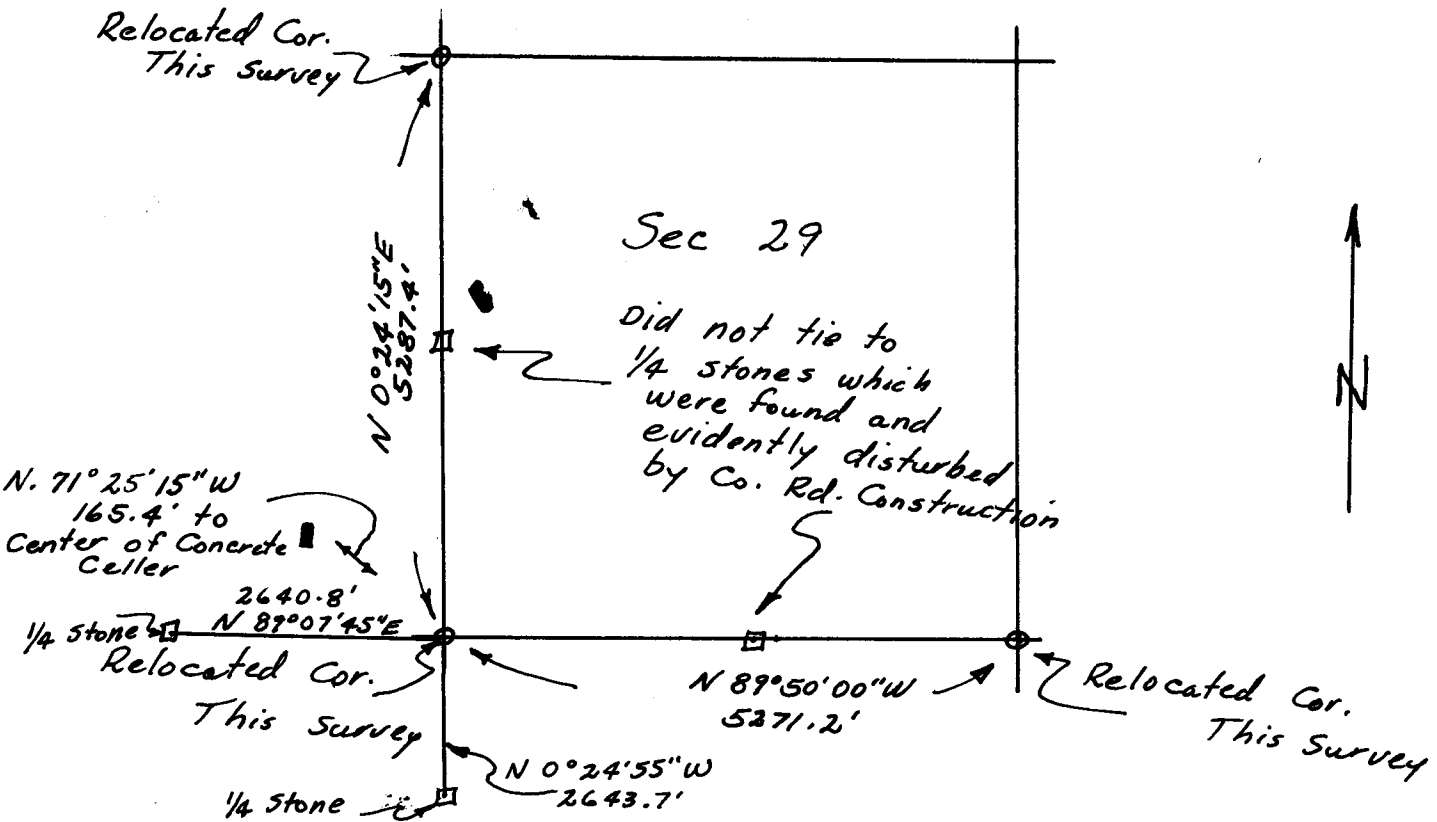 Relocated Cor.
This Survey
Sec 29
N 0°24'15"E
5287.4'
Did not tie to
1/4 stones which
were found and
evidently disturbed
by Co. Rd. Construction
N
N. 71°25'15" W
165.4' to
Center of Concrete
Celler
2640.8'
N 89°07'45"E
1/4 Stone
Relocated Cor.
This Survey
N 89°50'00"W
5271.2'
Relocated Cor.
This Survey
N 0°24'55"W
2643.7'
1/4 Stone